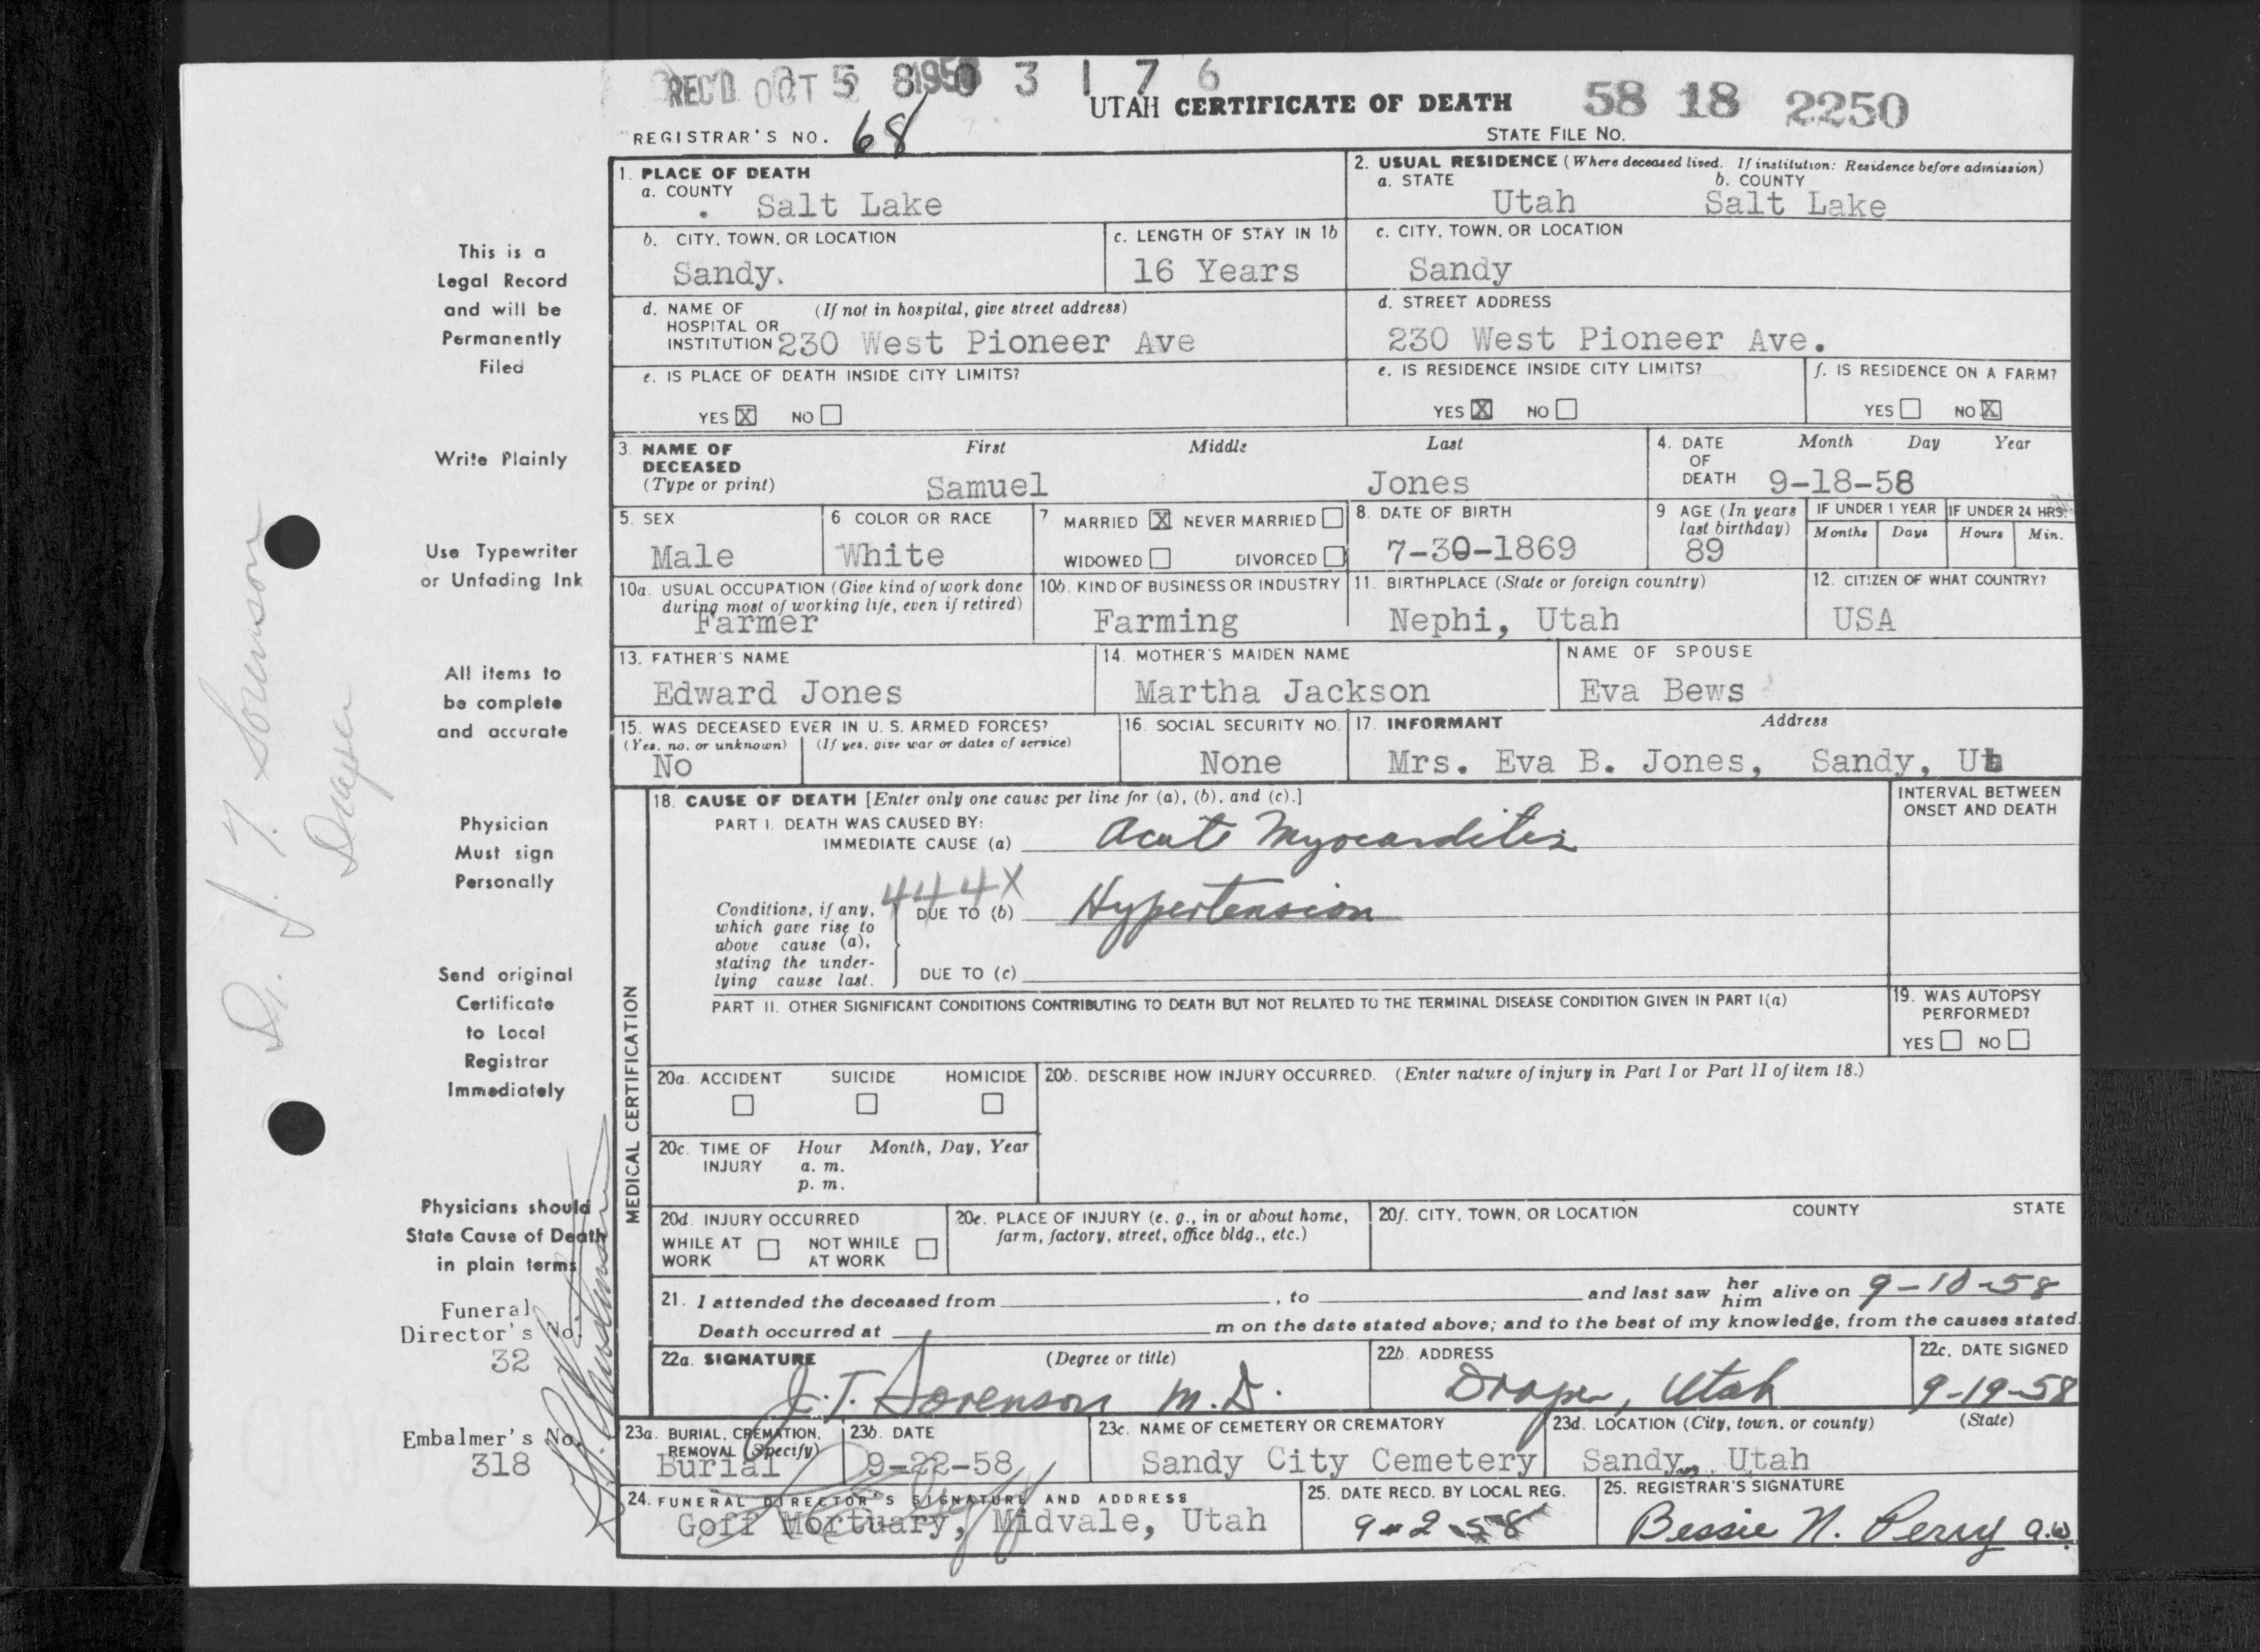 REC'D OCT 1958
5 8 0 3 1 7 6
UTAH CERTIFICATE OF DEATH 58 18 2250
REGISTRAR'S NO. 68 STATE FILE NO.
1. PLACE OF DEATH
a. COUNTY
Salt Lake
2. USUAL RESIDENCE (Where deceased lived. If institution: Residence before admission)
a. STATE b. COUNTY
Utah Salt Lake
b. CITY, TOWN, OR LOCATION
Sandy.
c. LENGTH OF STAY IN 1b
16 Years
c. CITY, TOWN, OR LOCATION
Sandy
d. NAME OF (If not in hospital, give street address)
HOSPITAL OR
INSTITUTION 230 West Pioneer Ave
d. STREET ADDRESS
230 West Pioneer Ave.
e. IS PLACE OF DEATH INSIDE CITY LIMITS?
YES X NO
e. IS RESIDENCE INSIDE CITY LIMITS?
YES X NO
f. IS RESIDENCE ON A FARM?
YES NO X
3. NAME OF First Middle Last
DECEASED
(Type or print) Samuel Jones
4. DATE Month Day Year
OF
DEATH 9-18-58
5. SEX
Male
6 COLOR OR RACE
White
7 MARRIED X NEVER MARRIED
WIDOWED DIVORCED
8. DATE OF BIRTH
7-30-1869
9 AGE (In years
last birthday)
89
IF UNDER 1 YEAR
Months Days
IF UNDER 24 HRS.
Hours Min.
10a. USUAL OCCUPATION (Give kind of work done
during most of working life, even if retired)
Farmer
10b. KIND OF BUSINESS OR INDUSTRY
Farming
11. BIRTHPLACE (State or foreign country)
Nephi, Utah
12. CITIZEN OF WHAT COUNTRY?
USA
13. FATHER'S NAME
Edward Jones
14. MOTHER'S MAIDEN NAME
Martha Jackson
NAME OF SPOUSE
Eva Bews
15. WAS DECEASED EVER IN U. S. ARMED FORCES?
(Yes, no, or unknown) (If yes, give war or dates of service)
No
16. SOCIAL SECURITY NO.
None
17. INFORMANT Address
Mrs. Eva B. Jones, Sandy, Ut
MEDICAL CERTIFICATION
18. CAUSE OF DEATH [Enter only one cause per line for (a), (b), and (c).]
PART I. DEATH WAS CAUSED BY:
IMMEDIATE CAUSE (a) Acute Myocarditis
INTERVAL BETWEEN
ONSET AND DEATH
444X
Conditions, if any,
which gave rise to
above cause (a),
stating the under-
lying cause last.
DUE TO (b) Hypertension
DUE TO (c)
PART II. OTHER SIGNIFICANT CONDITIONS CONTRIBUTING TO DEATH BUT NOT RELATED TO THE TERMINAL DISEASE CONDITION GIVEN IN PART I(a)
19. WAS AUTOPSY
PERFORMED?
YES NO
20a. ACCIDENT SUICIDE HOMICIDE
20b. DESCRIBE HOW INJURY OCCURRED. (Enter nature of injury in Part I or Part II of item 18.)
20c. TIME OF Hour Month, Day, Year
INJURY a. m.
p. m.
20d. INJURY OCCURRED
WHILE AT NOT WHILE
WORK AT WORK
20e. PLACE OF INJURY (e. g., in or about home,
farm, factory, street, office bldg., etc.)
20f. CITY, TOWN, OR LOCATION COUNTY STATE
21. I attended the deceased from , to and last saw her him alive on 9-10-58
Death occurred at m on the date stated above; and to the best of my knowledge, from the causes stated.
22a. SIGNATURE (Degree or title)
J. T. Sorenson M.D.
22b. ADDRESS
Draper, Utah
22c. DATE SIGNED
9-19-58
23a. BURIAL, CREMATION,
REMOVAL (Specify)
Burial
23b. DATE
9-22-58
23c. NAME OF CEMETERY OR CREMATORY
Sandy City Cemetery
23d. LOCATION (City, town, or county) (State)
Sandy, Utah
24. FUNERAL DIRECTOR'S SIGNATURE AND ADDRESS
Goff Mortuary, Midvale, Utah
25. DATE RECD. BY LOCAL REG.
9-2-58
25. REGISTRAR'S SIGNATURE
Bessie N. Perry a.w.
This is a
Legal Record
and will be
Permanently
Filed
Write Plainly
Use Typewriter
or Unfading Ink
All items to
be complete
and accurate
Physician
Must sign
Personally
Send original
Certificate
to Local
Registrar
Immediately
Physicians should
State Cause of Death
in plain terms
Funeral
Director's No.
32
Embalmer's No.
318
Dr. J. T. Sorenson
Draper